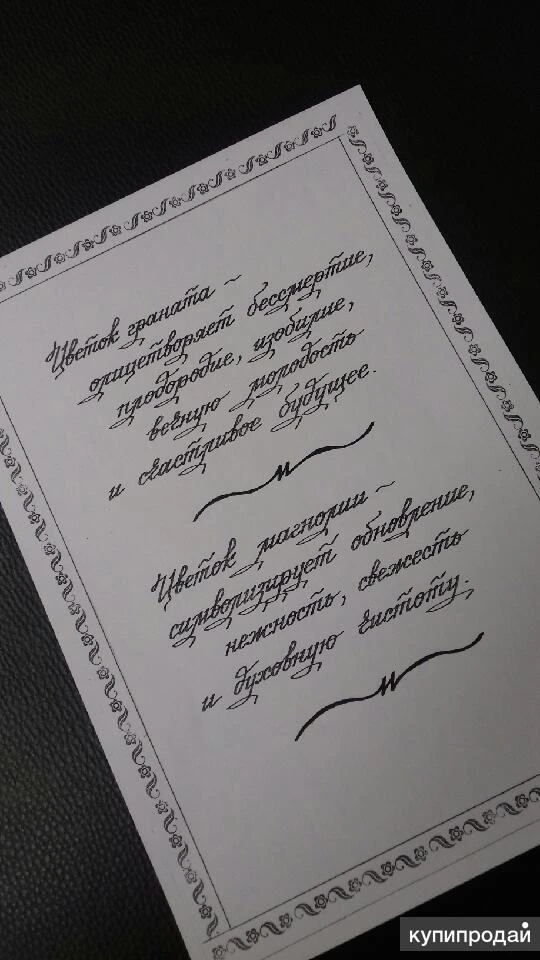 Цветок граната ~
олицетворяет бессмертие,
плодородие, изобилие,
вечную молодость
и счастливое будущее.
Цветок магнолии ~
символизирует обновление,
нежность, свежесть
и духовную чистоту.
купипродай